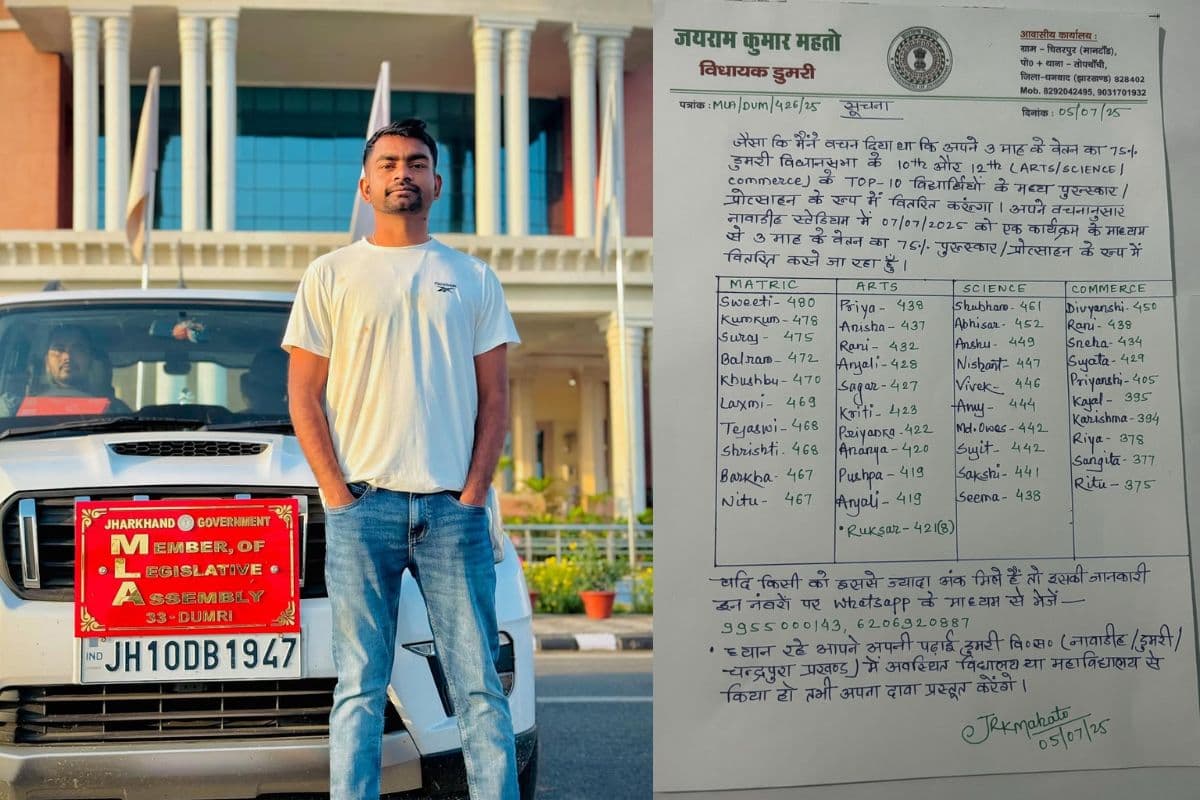 Reebok
JHARKHAND GOVERNMENT
MEMBER, OF
LEGISLATIVE
ASSEMBLY
33-DUMRI
IND JH10DB1947
जयराम कुमार महतो
विधायक डुमरी
आवासीय कार्यालय :
ग्राम - चितरपुर (मानटाँड़),
पो० + थाना - तोपचाँची,
जिला-धनबाद (झारखण्ड) 828402
Mob. 8292042495, 9031701932
पत्रांक : MLA/DUM/426/25
सूचना
दिनांक : 05/07/25
जैसा कि मैंने वचन दिया था कि अपने 3 माह के वेतन का 75%
डुमरी विधानसभा के 10th और 12th (ARTS/SCIENCE/
commerce) के TOP-10 विद्यार्थियों के मध्य पुरुस्कार/
प्रोत्साहन के रूप में वितरित करूंगा। अपने वचनानुसार
नावाडीह स्टेडियम में 07/07/2025 को एक कार्यक्रम के माध्यम
से 3 माह के वेतन का 75% पुरूस्कार/प्रोत्साहन के रूप में
वितरित करने जा रहा हूँ।
MATRIC ARTS SCIENCE COMMERCE
Sweeti - 480 Priya - 438 Shubham - 461 Divyanshi - 450
Kumkum - 478 Anisha - 437 Abhisar - 452 Rani - 438
Suraj - 475 Rani - 432 Anshu - 449 Sneha - 434
Balram - 472 Anjali - 428 Nishant - 447 Sujata - 429
Khushbu - 470 Sagar - 427 Vivek - 446 Priyanshi - 405
Laxmi - 469 Kriti - 423 Anuj - 444 Kajal - 395
Tejaswi - 468 Priyanka - 422 Md. Owes - 442 Karishma - 394
Shrishti - 468 Ananya - 420 Sujit - 442 Riya - 378
Barkha - 467 Pushpa - 419 Sakshi - 441 Sangita - 377
Nitu - 467 Anjali - 419 Seema - 438 Ritu - 375
• Ruksar - 421(8)
यदि किसी को इससे ज्यादा अंक मिले हैं तो इसकी जानकारी
इन नंबरों पर Whatsapp के माध्यम से भेजें —
9955000143, 6206920887
• ध्यान रहे आपने अपनी पढ़ाई डुमरी वि०स० (नावाडीह/डुमरी/
चन्द्रपुरा प्रखण्ड) में अवस्थित विद्यालय या महाविद्यालय से
किया हो तभी अपना दावा प्रस्तूत करेंगे।
JRKMahato
05/07/25